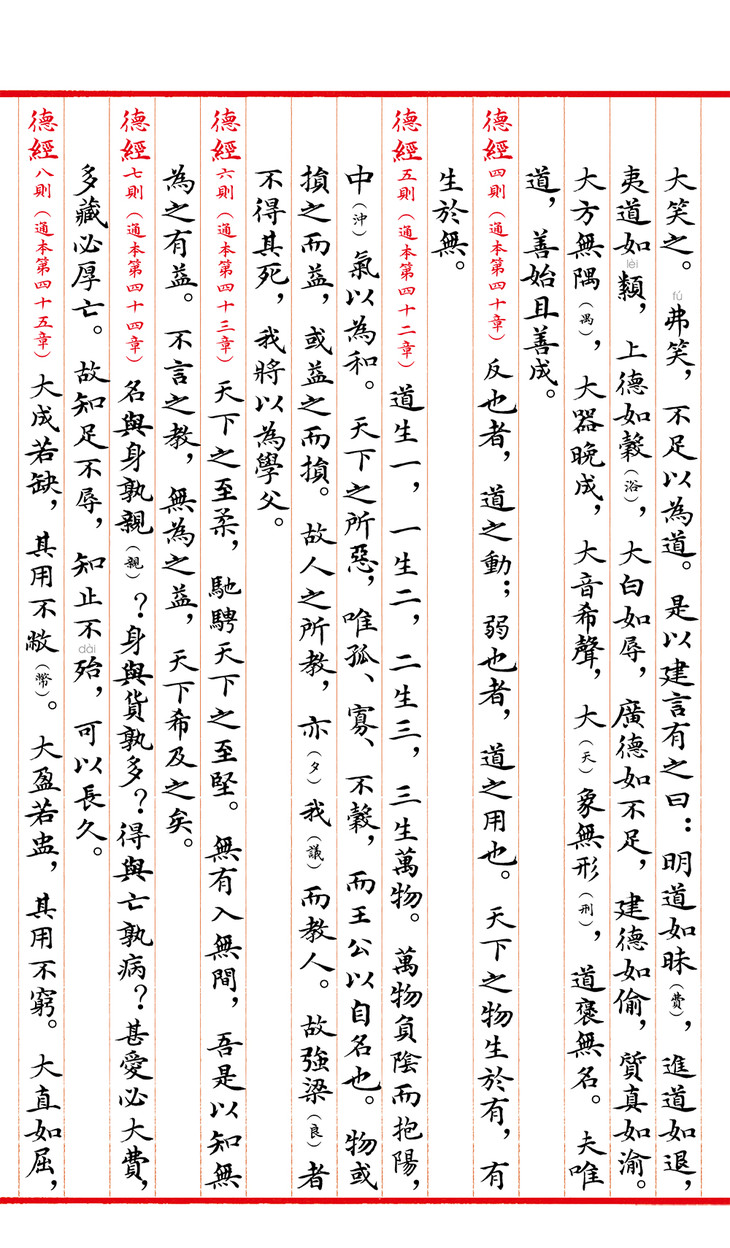 大笑之。弗(fú)笑，不足以為道。是以建言有之曰：明道如昧（費），進道如退，
夷道如纇(lèi)，上德如縠（浴），大白如辱，廣德如不足，建德如偷，質真如渝。
大方無隅（禺），大器晚成，大音希聲，大（天）象無形（刑），道褒無名。夫唯
道，善始且善成。
德經四則（通本第四十章）反也者，道之動；弱也者，道之用也。天下之物生於有，有
生於無。
德經五則（通本第四十二章）道生一，一生二，二生三，三生萬物。萬物負陰而抱陽，
中（沖）氣以為和。天下之所惡，唯孤、寡、不榖，而王公以自名也。物或
損之而益，或益之而損。故人之所教，亦（夕）我（議）而教人。故強梁（良）者
不得其死，我將以為學父。
德經六則（通本第四十三章）天下之至柔，馳騁天下之至堅。無有入無間，吾是以知無
為之有益。不言之教，無為之益，天下希及之矣。
德經七則（通本第四十四章）名與身孰親（親）？身與貨孰多？得與亡孰病？甚愛必大費，
多藏必厚亡。故知足不辱，知止不殆(dài)，可以長久。
德經八則（通本第四十五章）大成若缺，其用不敝（幣）。大盈若盅，其用不窮。大直如屈，